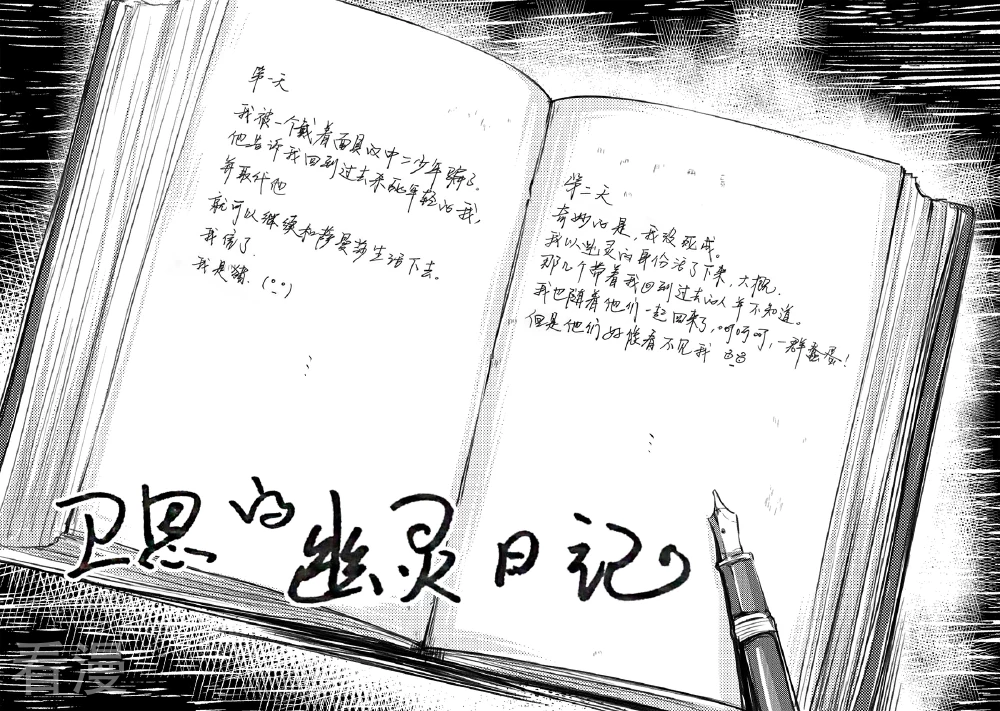 第一天
我被一个戴着面具的中二少年骗了。
他告诉我回到过去杀死年轻的我，
并取代他
就可以继续和萨曼莎生活下去。
我信了.
我是猪.
⋮
第二天
奇妙的是，我没死成。
我以幽灵的身份活了下来，大概.
那几个带着我回到过去的人并不知道。
我也随着他们一起回来了，呵呵呵，一群蠢蛋！
但是他们好像看不见我
⋮
卫思的幽灵日记
看漫